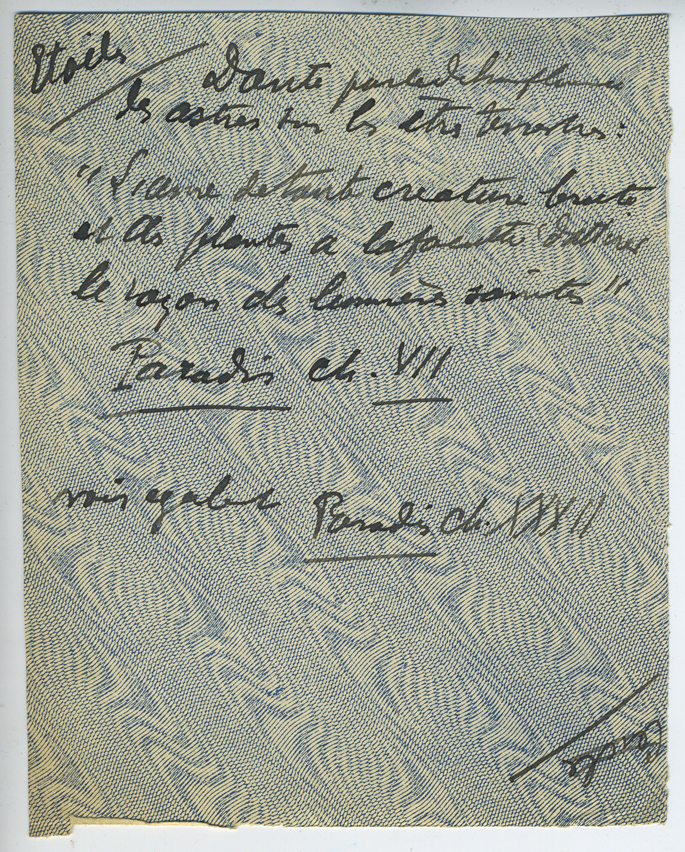 Etoiles
Dante parle de l'influence
des astres sur les êtres terrestres :
"L'ame de toute creature brute
et des plantes a la faculté d'attirer
le rayon des lumières saintes"
Paradis ch. VII
voir egalemt Paradis ch. XXXII